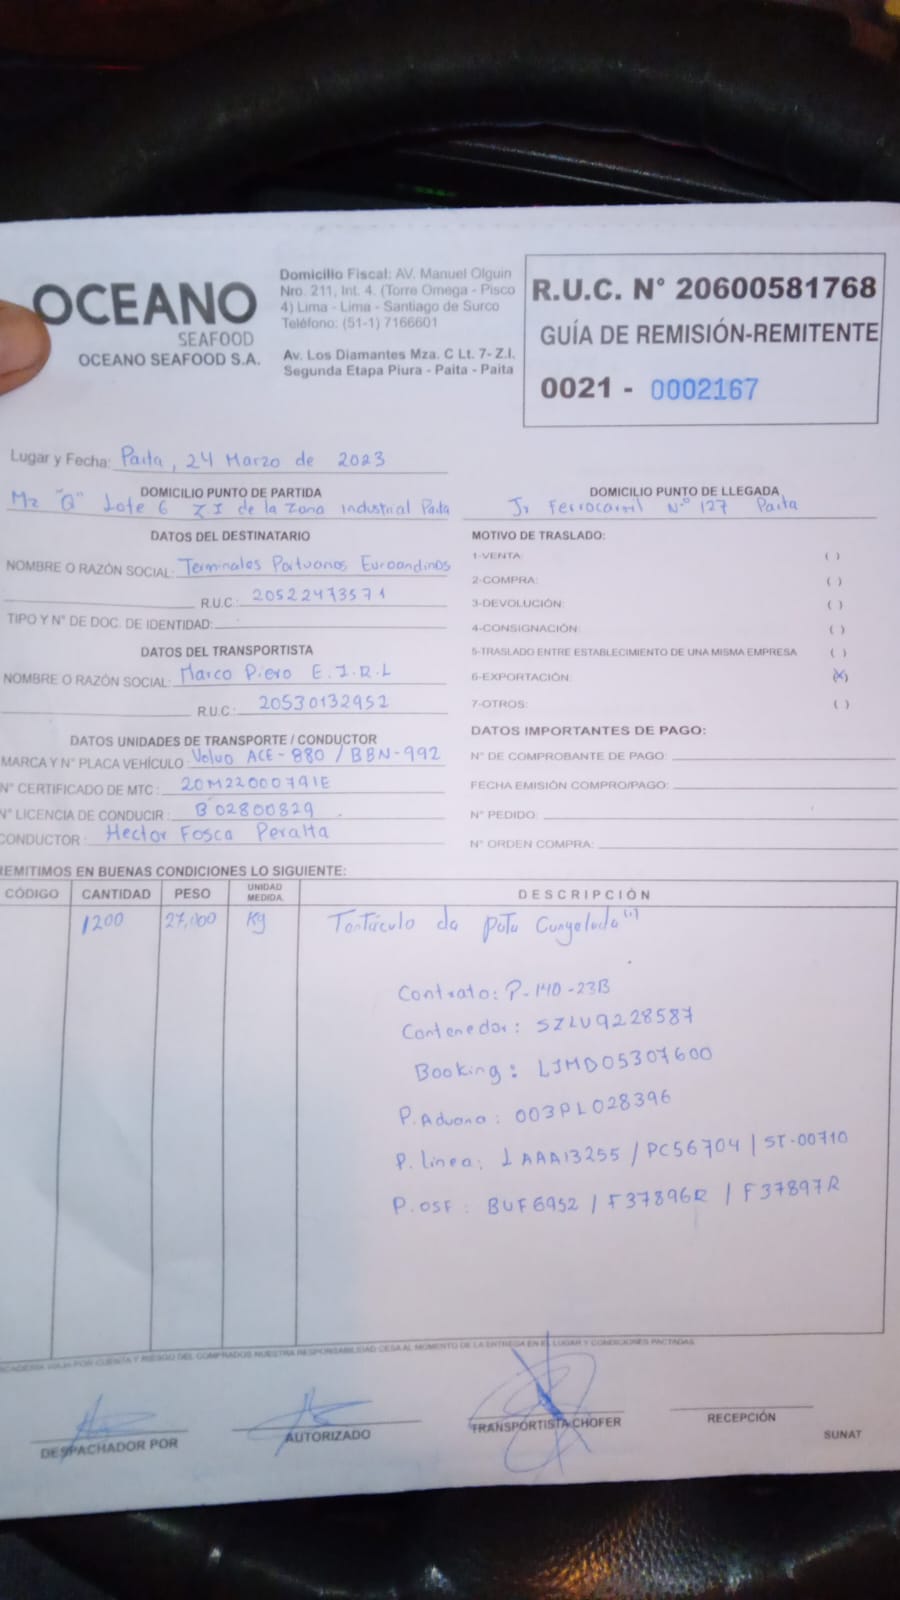 OCEANO
SEAFOOD
OCEANO SEAFOOD S.A.
Domicilio Fiscal: AV. Manuel Olguin
Nro. 211, Int. 4. (Torre Omega - Pisco
4) Lima - Lima - Santiago de Surco
Teléfono: (51-1) 7166601
Av. Los Diamantes Mza. C Lt. 7- Z.I.
Segunda Etapa Piura - Paita - Paita
R.U.C. N° 20600581768
GUÍA DE REMISIÓN-REMITENTE
0021 - 0002167
Lugar y Fecha: Paita, 24 Marzo de 2023
DOMICILIO PUNTO DE PARTIDA
Mz "Q" Lote 6 ZI de la Zona industrial Paita
DOMICILIO PUNTO DE LLEGADA
Jr Ferrocarril N° 127 Paita
DATOS DEL DESTINATARIO
NOMBRE O RAZÓN SOCIAL: Terminales Portuanos Euroandinos
R.U.C.: 20522473571
TIPO Y N° DE DOC. DE IDENTIDAD:
DATOS DEL TRANSPORTISTA
NOMBRE O RAZÓN SOCIAL: Marco Piero E.I.R.L
R.U.C.: 20530132952
DATOS UNIDADES DE TRANSPORTE / CONDUCTOR
MARCA Y N° PLACA VEHÍCULO Volvo ACE-880 / BBN-992
N° CERTIFICADO DE MTC: 20M22000791E
N° LICENCIA DE CONDUCIR: B 02800829
CONDUCTOR: Hector Fosca Peralta
MOTIVO DE TRASLADO:
1-VENTA: ( )
2-COMPRA: ( )
3-DEVOLUCIÓN: ( )
4-CONSIGNACIÓN: ( )
5-TRASLADO ENTRE ESTABLECIMIENTO DE UNA MISMA EMPRESA ( )
6-EXPORTACIÓN: (X)
7-OTROS: ( )
DATOS IMPORTANTES DE PAGO:
N° DE COMPROBANTE DE PAGO:
FECHA EMISIÓN COMPRO/PAGO:
N° PEDIDO:
N° ORDEN COMPRA:
REMITIMOS EN BUENAS CONDICIONES LO SIGUIENTE:
CÓDIGO CANTIDAD PESO UNIDAD MEDIDA. DESCRIPCIÓN
1200 27,000 Kg Tentáculo da pota Congelado
Contrato: P-140-23B
Contenedor: SZLU9228587
Booking: LIMD05307600
P. Aduana: 003PL028396
P. linea: LAAA13255 / PC56704 / ST-00710
P. OSF: BUF6952 / F37896R / F37897R
VIAJA POR CUENTA Y RIESGO DEL COMPRADOS NUESTRA RESPONSABILIDAD CESA AL MOMENTO DE LA ENTREGA EN EL LUGAR Y CONDICIONES PACTADAS
DESPACHADOR POR
AUTORIZADO
TRANSPORTISTA CHOFER
RECEPCIÓN
SUNAT